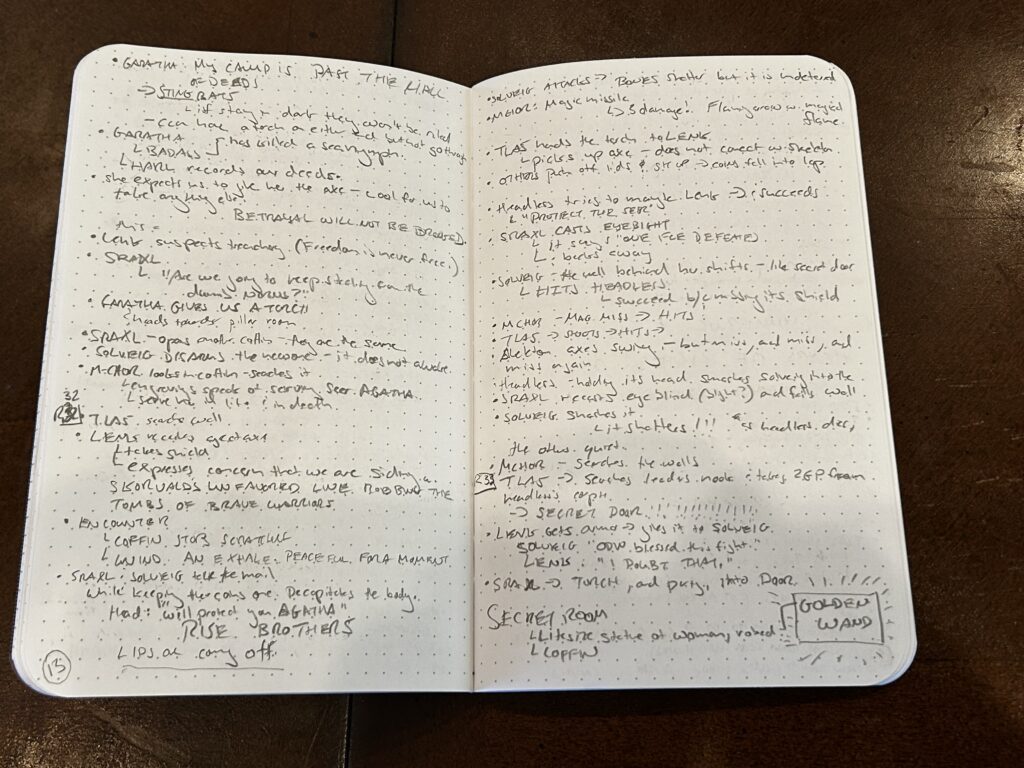 • GARATHA: My CAMP IS PAST THE HALL
OF DEEDS
→ STINGBATS
↳ if stay in dark they won't be riled
- can have a torch on either end but not go through
• GARATHA
↳ BADASS has killed a sea nymph.
↳ HARK records our deeds.
• she expects us to give her the axe - cool for us to
take anything else.
BETRAYAL WILL NOT BE BROOKED.
this =
• LENS suspects treachery (Freedom is never free!)
• SRAXL
↳ "Are we going to keep stealing from the
NORNS?"
• GARATHA GIVES US A TORCH
heads towards pillar room
• SRAXL - opens another coffin - they are the same
• SOLVEIG DISARMS the new one - it does not awake.
• MCHOR looks in coffin - searches it
↳ engravings speak of serving Seer AGATHA
↳ serve her in life & in death
32
• TLAS searches wall
• LENS receives
↳ takes shield
↳ expresses concern that we are siding w.
SKORVALDS UNFAVORED LIKE ROBBING THE
TOMBS OF BRAVE WARRIORS.
• ENCOUNTER
↳ COFFIN STOPS SCRATCHING
↳ WIND. AN EXHALE. PEACEFUL FOR A MOMENT
• SRAXL: SOLVEIG take the mail
while keeping the coins one. Decapitates the body.
Head: "will protect you AGATHA"
RISE BROTHERS
↳ LIPS as coming off
13
• SOLVEIG ATTACKS → BONES shatter but it is undeterred
• MCHOR: Magic missile
↳ 5 damage! Flaming arrow w. merged
flame.
• TLAS hands the torch to LENS
↳ picks up axe - does not connect w. skeleton
• OTHERS push off lids & sit up → coins fell into lap
• Headless tries to mangle Lens → succeeds
↳ "PROTECT THE SEER"
• SRAXL CASTS EYEBIGHT
↳ it says "ONE EYE DEFEATED
↳ : backs away
• SOLVEIG - the wall behind her shifts - like secret door
↳ HITS HEADLESS
↳ succeed b/c missing its shield
• MCHOR - MAG. MISS → HITS!
• TLAS → SHOOTS → HITS →
Skeleton axes swing - but miss, and miss, and
miss again
• Headless - holding its head smashes solveig into the
• SRAXL recasts eye blind (blight?) and fails wall
• SOLVEIG smashes it.
↳ it shatters!!! as headless dies,
the others quiet.
• MCHOR - Searches the walls
• TLAS → Searches leaders nook & takes 2EP from
headless corpse.
→ SECRET DOOR !!!!!!!!!!!!
• LENS gets → gives it to SOLVEIG.
SOLVEIG "ODIN blessed this fight."
LENS: "I DOUBT THAT."
• SRAXL → TORCH, and party, into DOOR
SECRET ROOM
↳ Lifesize statue of woman, robed
↳ COFFIN
GOLDEN
WAND